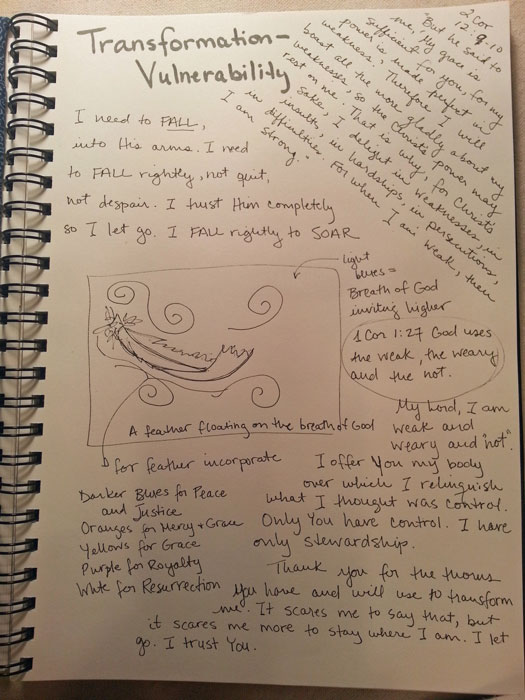 Transformation-
Vulnerability
2 Cor
12:9,10
"But he said to
me, "My grace is
sufficient for you, for my
power is made perfect in
weakness." Therefore I will
boast all the more gladly about my
weaknesses, so the Christ's power may
rest on me. That is why, for Christ's
sake, I delight in weaknesses, in
insults, in hardships, in persecutions,
in difficulties. For when I am weak, then
I am strong."
I need to FALL,
into His arms. I need
to FALL rightly, not quit,
not despair. I trust Him completely
so I let go. I FALL rightly to SOAR
light
blues =
Breath of God
inviting higher
1 Cor 1:27 God uses
the weak, the weary
and the not.
A feather floating on the breath of God
for feather incorporate
Darker Blues for Peace
and Justice
Oranges for Mercy + Grace
Yellows for Grace
Purple for Royalty
White for Resurrection
My Lord, I am
weak and
weary and "not".
I offer You my body
over which I relinquish
what I thought was control.
Only You have control. I have
only stewardship.
Thank you for the thorns
you have and will use to transform
me. It scares me to say that, but
it scares me more to stay where I am. I let
go. I trust You.